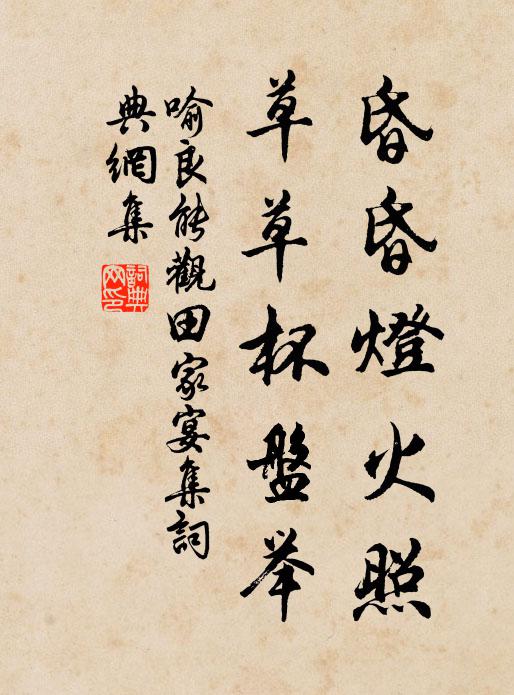 昏昏燈火照
草草杯盤举
喻良能觀田家宴集詞
典網集
詞典网印